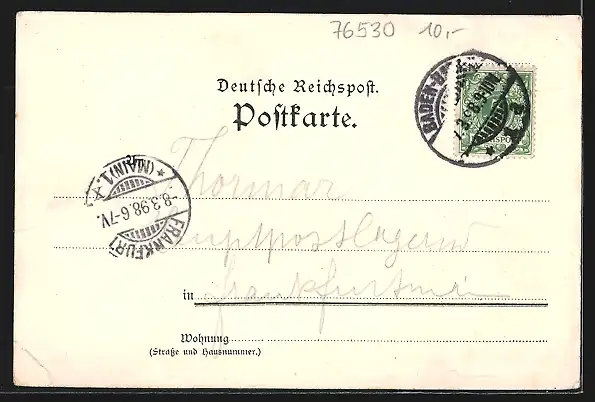 76530 10,-
Deutsche Reichspost.
Postkarte.
BADEN-BADEN
7.3.98.
FRANKFURT
* (MAIN) 1. *
-8.3.98.6-7V.
Thormar
Hauptpostlagernd
in Frankfurt
Wohnung
(Straße und Hausnummer.)